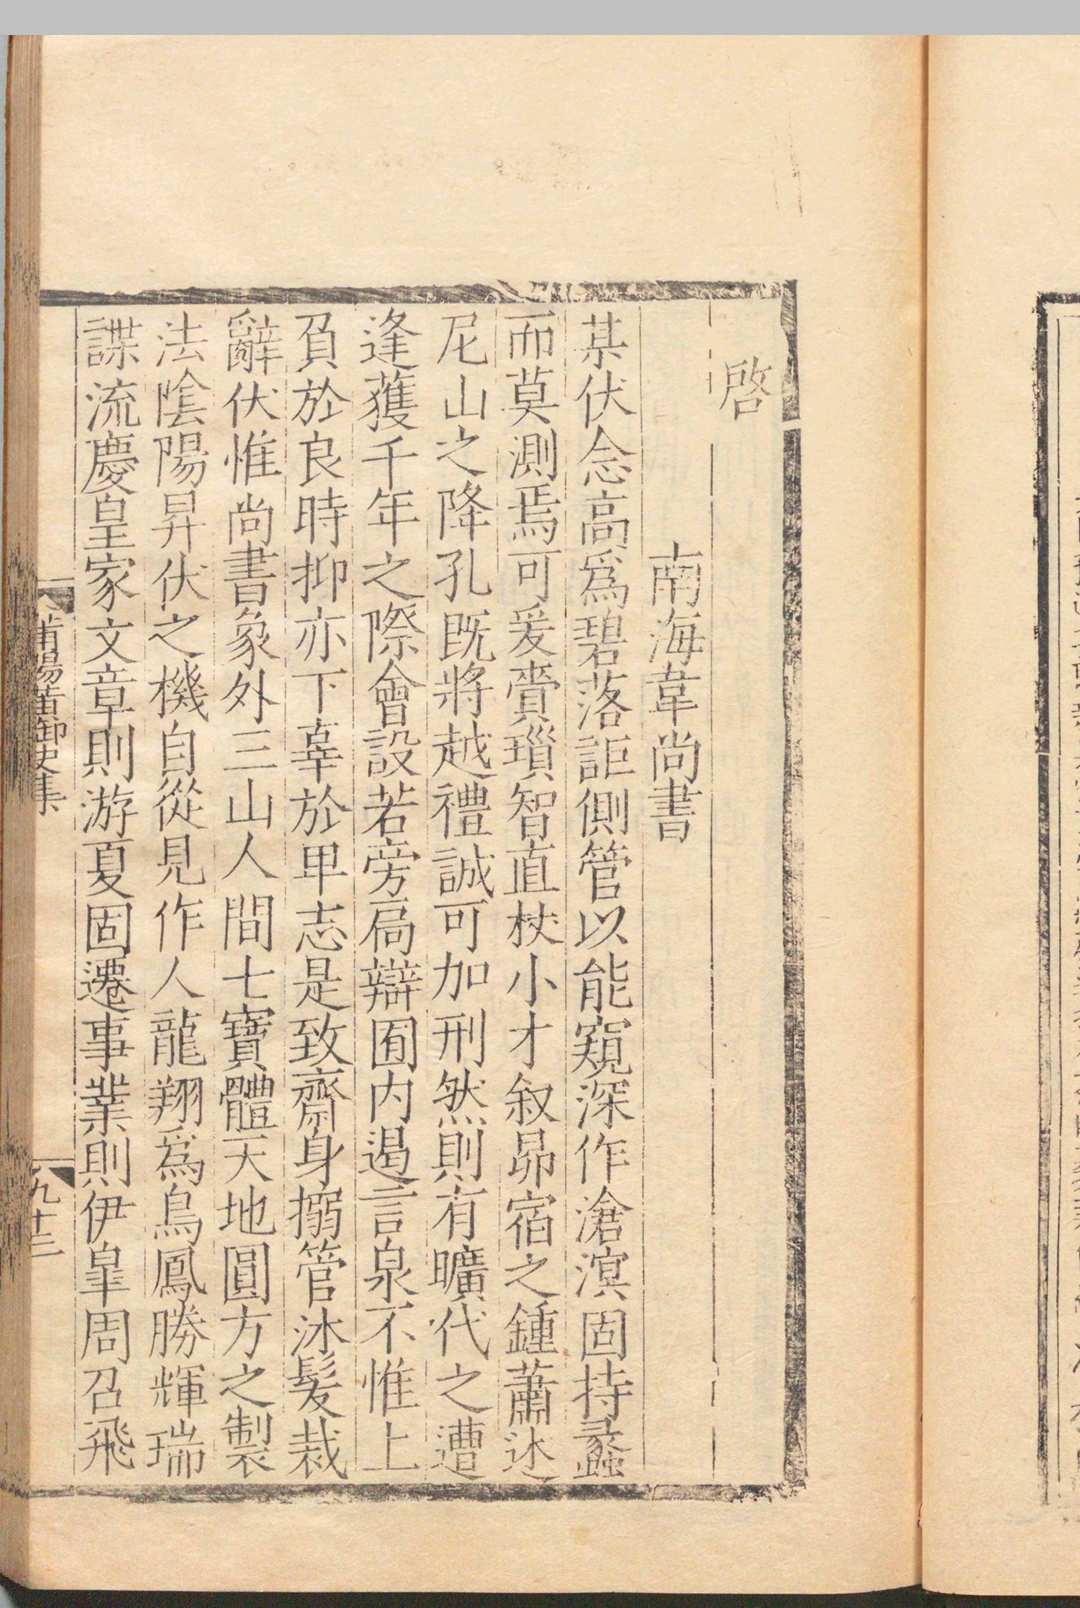 啓
南海韋尚書
某伏念高爲碧落詎側管以能窺深作滄溟固持蠡
而莫測焉可爰賷瑣智直杖小才叙昴宿之鍾蕭述
尼山之降孔既將越禮誠可加刑然則有曠代之遭
逢獲千年之際會設若旁扃辯囿内遏言泉不惟上
負於良時抑亦下辜於卑志是致齋身搦管沐髮裁
辭伏惟尚書象外三山人間七寶體天地圓方之製
法陰陽昇伏之機自從見作人龍翔爲鳥鳳勝輝瑞
諜流慶皇家文章則游夏固遷事業則伊臯周召飛
莆陽黄御史集
九十三